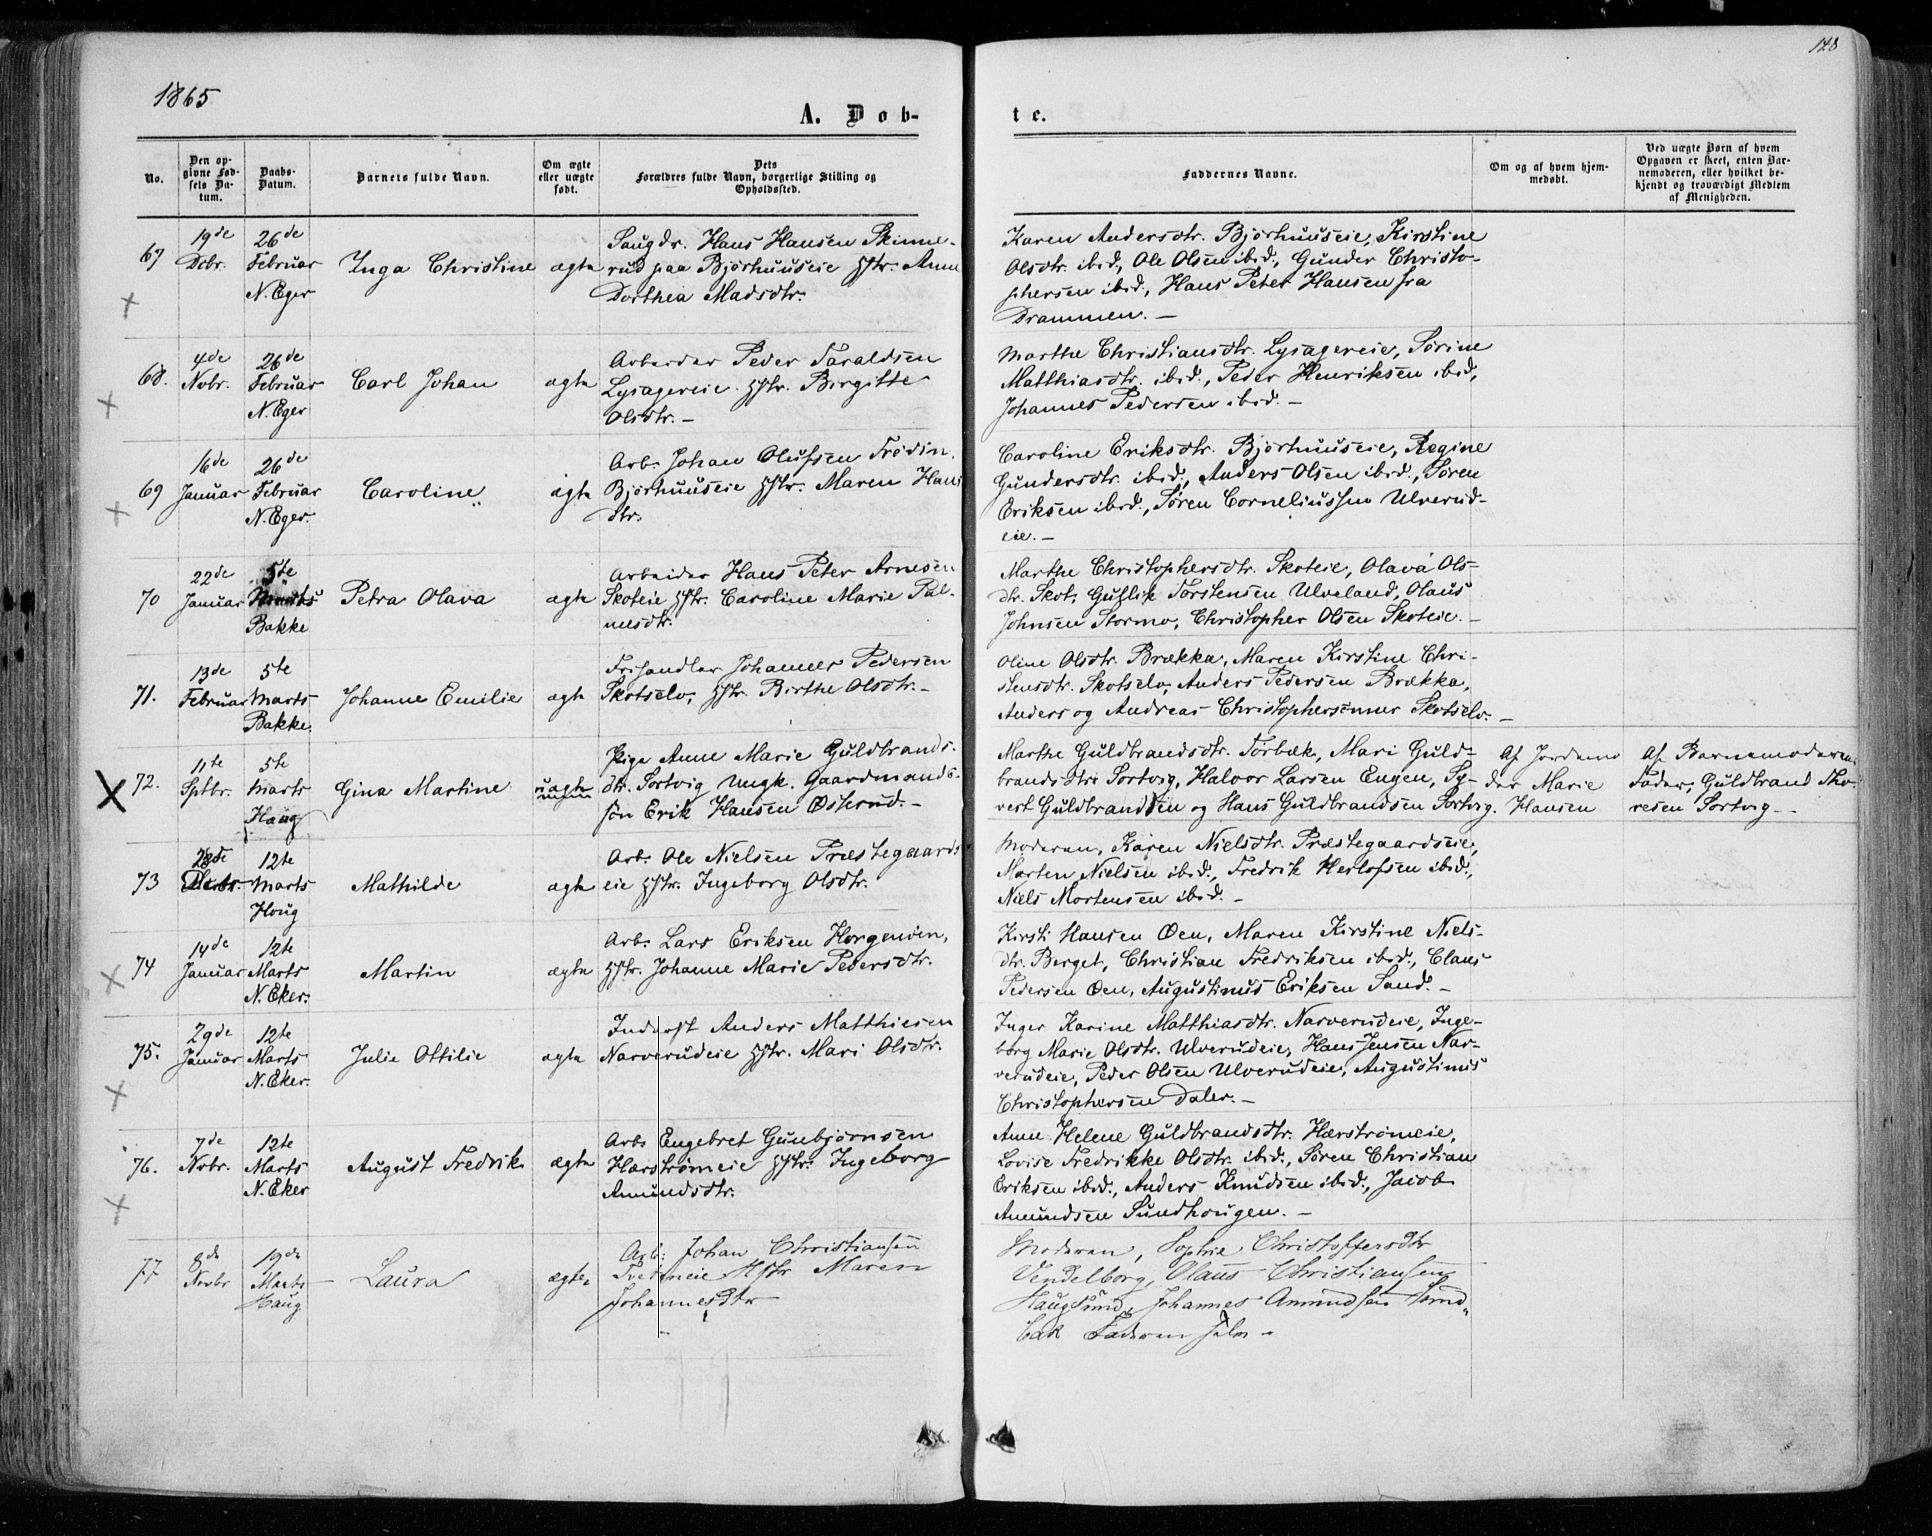 148
1865
A. Døb-
te.
No.
Den op-
givne Fød-
sels Da-
tum.
Daabs-
Datum.
Barnets fulde Navn.
Om ægte
eller uægte
født.
Dets
Forældres fulde Navn, borgerlige Stilling og
Opholdssted.
Faddernes Navne.
Om og af hvem hjem-
medøbt.
Ved uægte Børn af hvem
Opgaven er skeet, enten Bar-
nemoderen, eller hvilket be-
kjendt og troværdigt Medlem
af Menigheden.
67
19de
Dcbr.
26de
Februar
N. Eger
Inga Christine
ægte
Saugdr. Hans Hansen Skinne-
rud paa Bjørhuuseie Hstr. Anne
Dorthea Madsdtr.
Karen Andersdtr. Bjørhuuseie, Kirstine
Olsdtr. ibid., Ole Olsen ibid., Gunder Christo-
phersen ibid., Hans Peter Hansen fra
Drammen. –
68.
4de
Nvbr.
26de
Februar
N. Eger
Carl Johan
ægte
Arbeider Peder Taraldsen
Lysagereie Hstr. Birgitte
Olsdtr. –
Marthe Christiansdtr. Lysagereie, Sørine
Matthiasdtr. ibid., Peder Henriksen ibid,
Johannes Pedersen ibid. –
69
16de
Januar
26de
Februar
N. Eger.
Caroline
ægte
Arb. Johan Olufsen Frødin,
Bjørhuuseie Hstr. Maren Hans
dtr.
Caroline Eriksdtr. Bjørhuuseie, Regine
Gundersdtr. ibid., Anders Olsen ibid., Søren
Eriksen ibid., Søren Corneliussen Ulverud-
eie. –
70
22de
Januar
5te
Marts
Bakke
Petra Olava
ægte
Arbeider Hans Peter Arnesen
Skoteie Hstr. Caroline Marie Pal-
mesdtr.
Marthe Christophersdtr. Skoteie, Olava Ols-
dtr. Skot, Gutzlik Torstensen Ulveland, Olaus
Johnsen Stormo, Christopher Olsen Skoteie. –
71.
13de
Februar
5te
Marts
Bakke
Johanne Emilie
ægte
Frihandler Johannes Pedersen
Skotselv, Hstr. Birthe Olsdtr. –
Oline Olsdtr. Brækka, Maren Kirstine Chri-
stensdtr. Skotselv, Anders Pedersen Brækka,
Anders og Andreas Christophersønner Skotselv. –
72.
11te
Sptbr.
5te
Marts
Haug
Gina Martine
uægte
Pige Anne Marie Guldbrands-
dtr. Sortvig Ungk. Gaardmands-
søn Erik Hansen Østerud. –
Marthe Guldbrandsdtr. Torbæk, Mari Guld-
brandsdtr. Sortvig, Halvor Larsen Engen, Sy-
vert Guldbrandsen og Hans Guldbrandsen Sortvig.
Af Jordemo
der Marie
Hansen
Af Barnemoderens
Fader, Guldbrand Tho-
resen Sortvig –
73
28de
12te
Marts
Houg
Mathilde
ægte
Arb. Ole Nielsen Præstegaards
eie Hstr. Ingeborg Olsdtr.
Moderen, Karen Nielsdtr. Præstegaardseie,
Morten Nielsen ibid., Fredrik Herlofsen ibid.,
Niels Mortensen ibid. –
74
14de
Januar
12te
Marts
N. Eker.
Martin
ægte
Arb. Lars Eriksen Horgenøen,
Hstr. Johanne Marie Pedersdtr.
Kirsti Hansen Øen, Maren Kirstine Niels-
dtr. Berget, Christian Fredriksen ibid., Claus
Pedersen Øen, Augustinus Eriksen Sand. –
75.
29de
Januar
12te
Marts
N. Eker.
Julie Ottilie
ægte
Inderst Anders Matthiesen
Narverudeie Hstr. Mari Olsdtr.
Inger Karine Matthiasdtr. Narverudeie, Inge-
borg Marie Olsdtr. Ulverudeie, Hans Jensen Nar-
verudeie, Peder Olsen Ulverudeie, Augustinus
Christophersen Daler. –
76.
7de
Nvbr.
12te
Marts
N. Eker
August Fredrik
ægte
Arb. Engebret Gunbjørnsen
Hærstrømeie Hstr. Ingeborg
Amundsdtr.
Anne Helene Guldbrandsdtr. Hærstrømeie,
Lovise Fredrikke Olsdtr. ibid., Søren Christian
Eriksen ibid., Anders Knudsen ibid., Jacob
Amundsen Sundhougen. –
77
8de
Novbr
19de
Marts
Haug
Laura
ægte
Arb: Johan Christiansen
Hstr Maren
Johannesdtr
Moderen, Sophie Christoffersdtr
Vendelborg, Olaus Christiansen
Haugsund, Johannes Amundsen Sund-
bak Faderen selv –